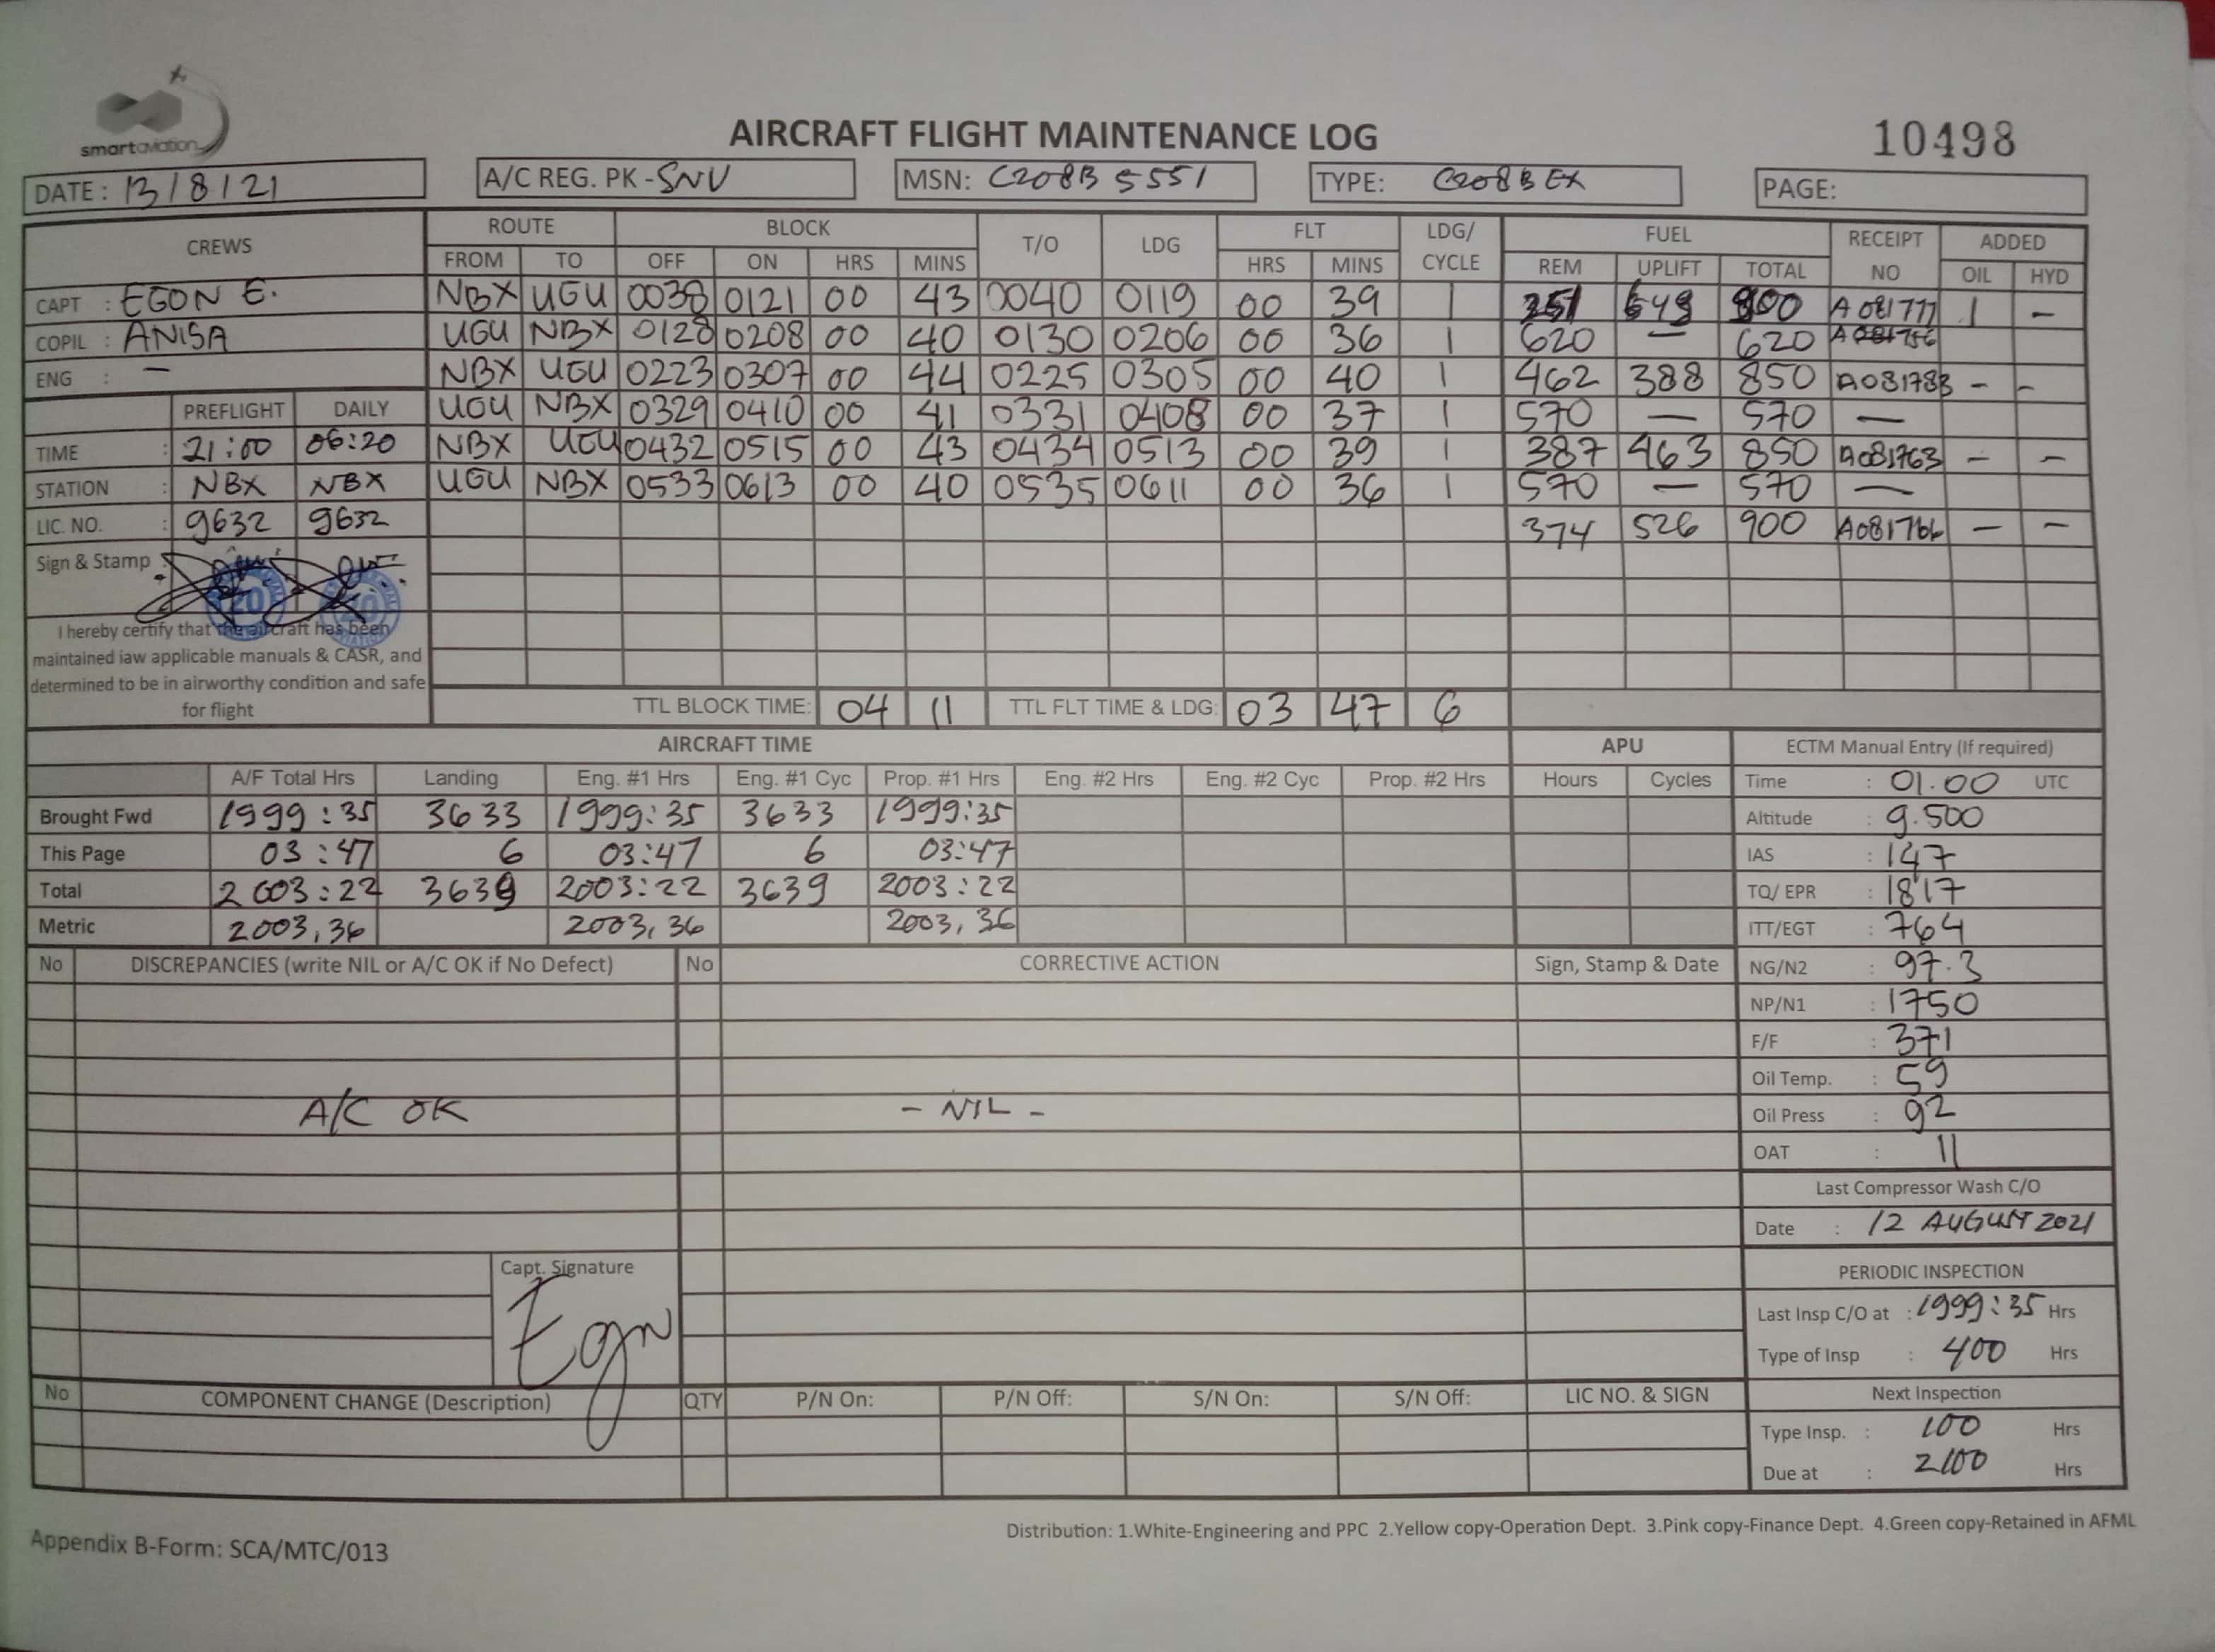 smartaviation
AIRCRAFT FLIGHT MAINTENANCE LOG
10498
DATE : 13/8/21 A/C REG. PK - SNV MSN: C208B 5551 TYPE: C208B EX PAGE:
CREWS ROUTE BLOCK T/O LDG FLT LDG/ CYCLE FUEL RECEIPT NO ADDED
FROM TO OFF ON HRS MINS HRS MINS REM UPLIFT TOTAL OIL HYD
CAPT : EGON E. NBX UGU 0038 0121 00 43 0040 0119 00 39 1 A081777 1 -
COPIL : ANISA UGU NBX 0128 0208 00 40 0130 0206 00 36 1 620 - 620
ENG : - NBX UGU 0223 0307 00 44 0225 0305 00 40 1 462 388 850 A081783 - -
PREFLIGHT DAILY UGU NBX 0329 0410 00 41 0331 0408 00 37 1 570 - 570 -
TIME : 21:00 06:20 NBX UGU 0432 0515 00 43 0434 0513 00 39 1 387 463 850 A081763 - -
STATION : NBX NBX UGU NBX 0533 0613 00 40 0535 0611 00 36 1 570 - 570 -
LIC. NO. : 9632 9632 374 526 900 A081766 - -
Sign & Stamp :
I hereby certify that the aircraft has been
maintained iaw applicable manuals & CASR, and
determined to be in airworthy condition and safe
for flight
TTL BLOCK TIME: 04 11 TTL FLT TIME & LDG: 03 47 6
AIRCRAFT TIME APU ECTM Manual Entry (If required)
A/F Total Hrs Landing Eng. #1 Hrs Eng. #1 Cyc Prop. #1 Hrs Eng. #2 Hrs Eng. #2 Cyc Prop. #2 Hrs Hours Cycles Time : 01.00 UTC
Brought Fwd 1999:35 3633 1999:35 3633 1999:35 Altitude : 9.500
This Page 03:47 6 03:47 6 03:47 IAS : 147
Total 2003:22 3639 2003:22 3639 2003:22 TQ/ EPR : 1817
Metric 2003,36 2003,36 2003,36 ITT/EGT : 764
No DISCREPANCIES (write NIL or A/C OK if No Defect) No CORRECTIVE ACTION Sign, Stamp & Date NG/N2 : 97.3
NP/N1 : 1750
F/F : 371
Oil Temp. : 59
A/C OK - NIL - Oil Press : 92
OAT : 11
Last Compressor Wash C/O
Date : 12 AUGUST 2021
Capt. Signature
Egon
PERIODIC INSPECTION
Last Insp C/O at : 1999:35 Hrs
Type of Insp : 400 Hrs
No COMPONENT CHANGE (Description) QTY P/N On: P/N Off: S/N On: S/N Off: LIC NO. & SIGN Next Inspection
Type Insp. : 100 Hrs
Due at : 2100 Hrs
Appendix B-Form: SCA/MTC/013
Distribution: 1.White-Engineering and PPC 2.Yellow copy-Operation Dept. 3.Pink copy-Finance Dept. 4.Green copy-Retained in AFML